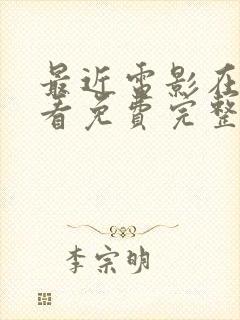 最近雷影在
看免费完整
李宗明